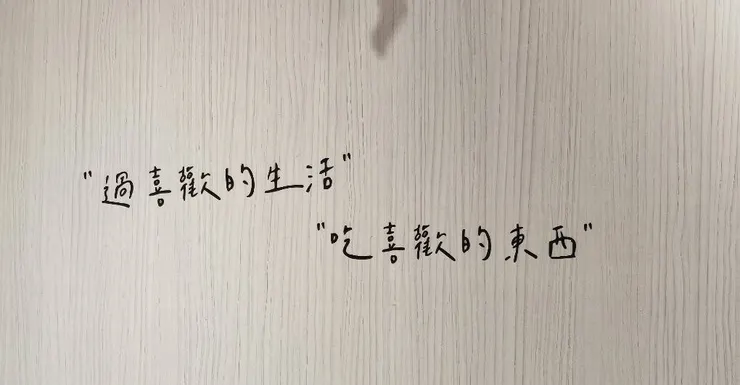 "過喜歡的生活"
"吃喜歡的東西"